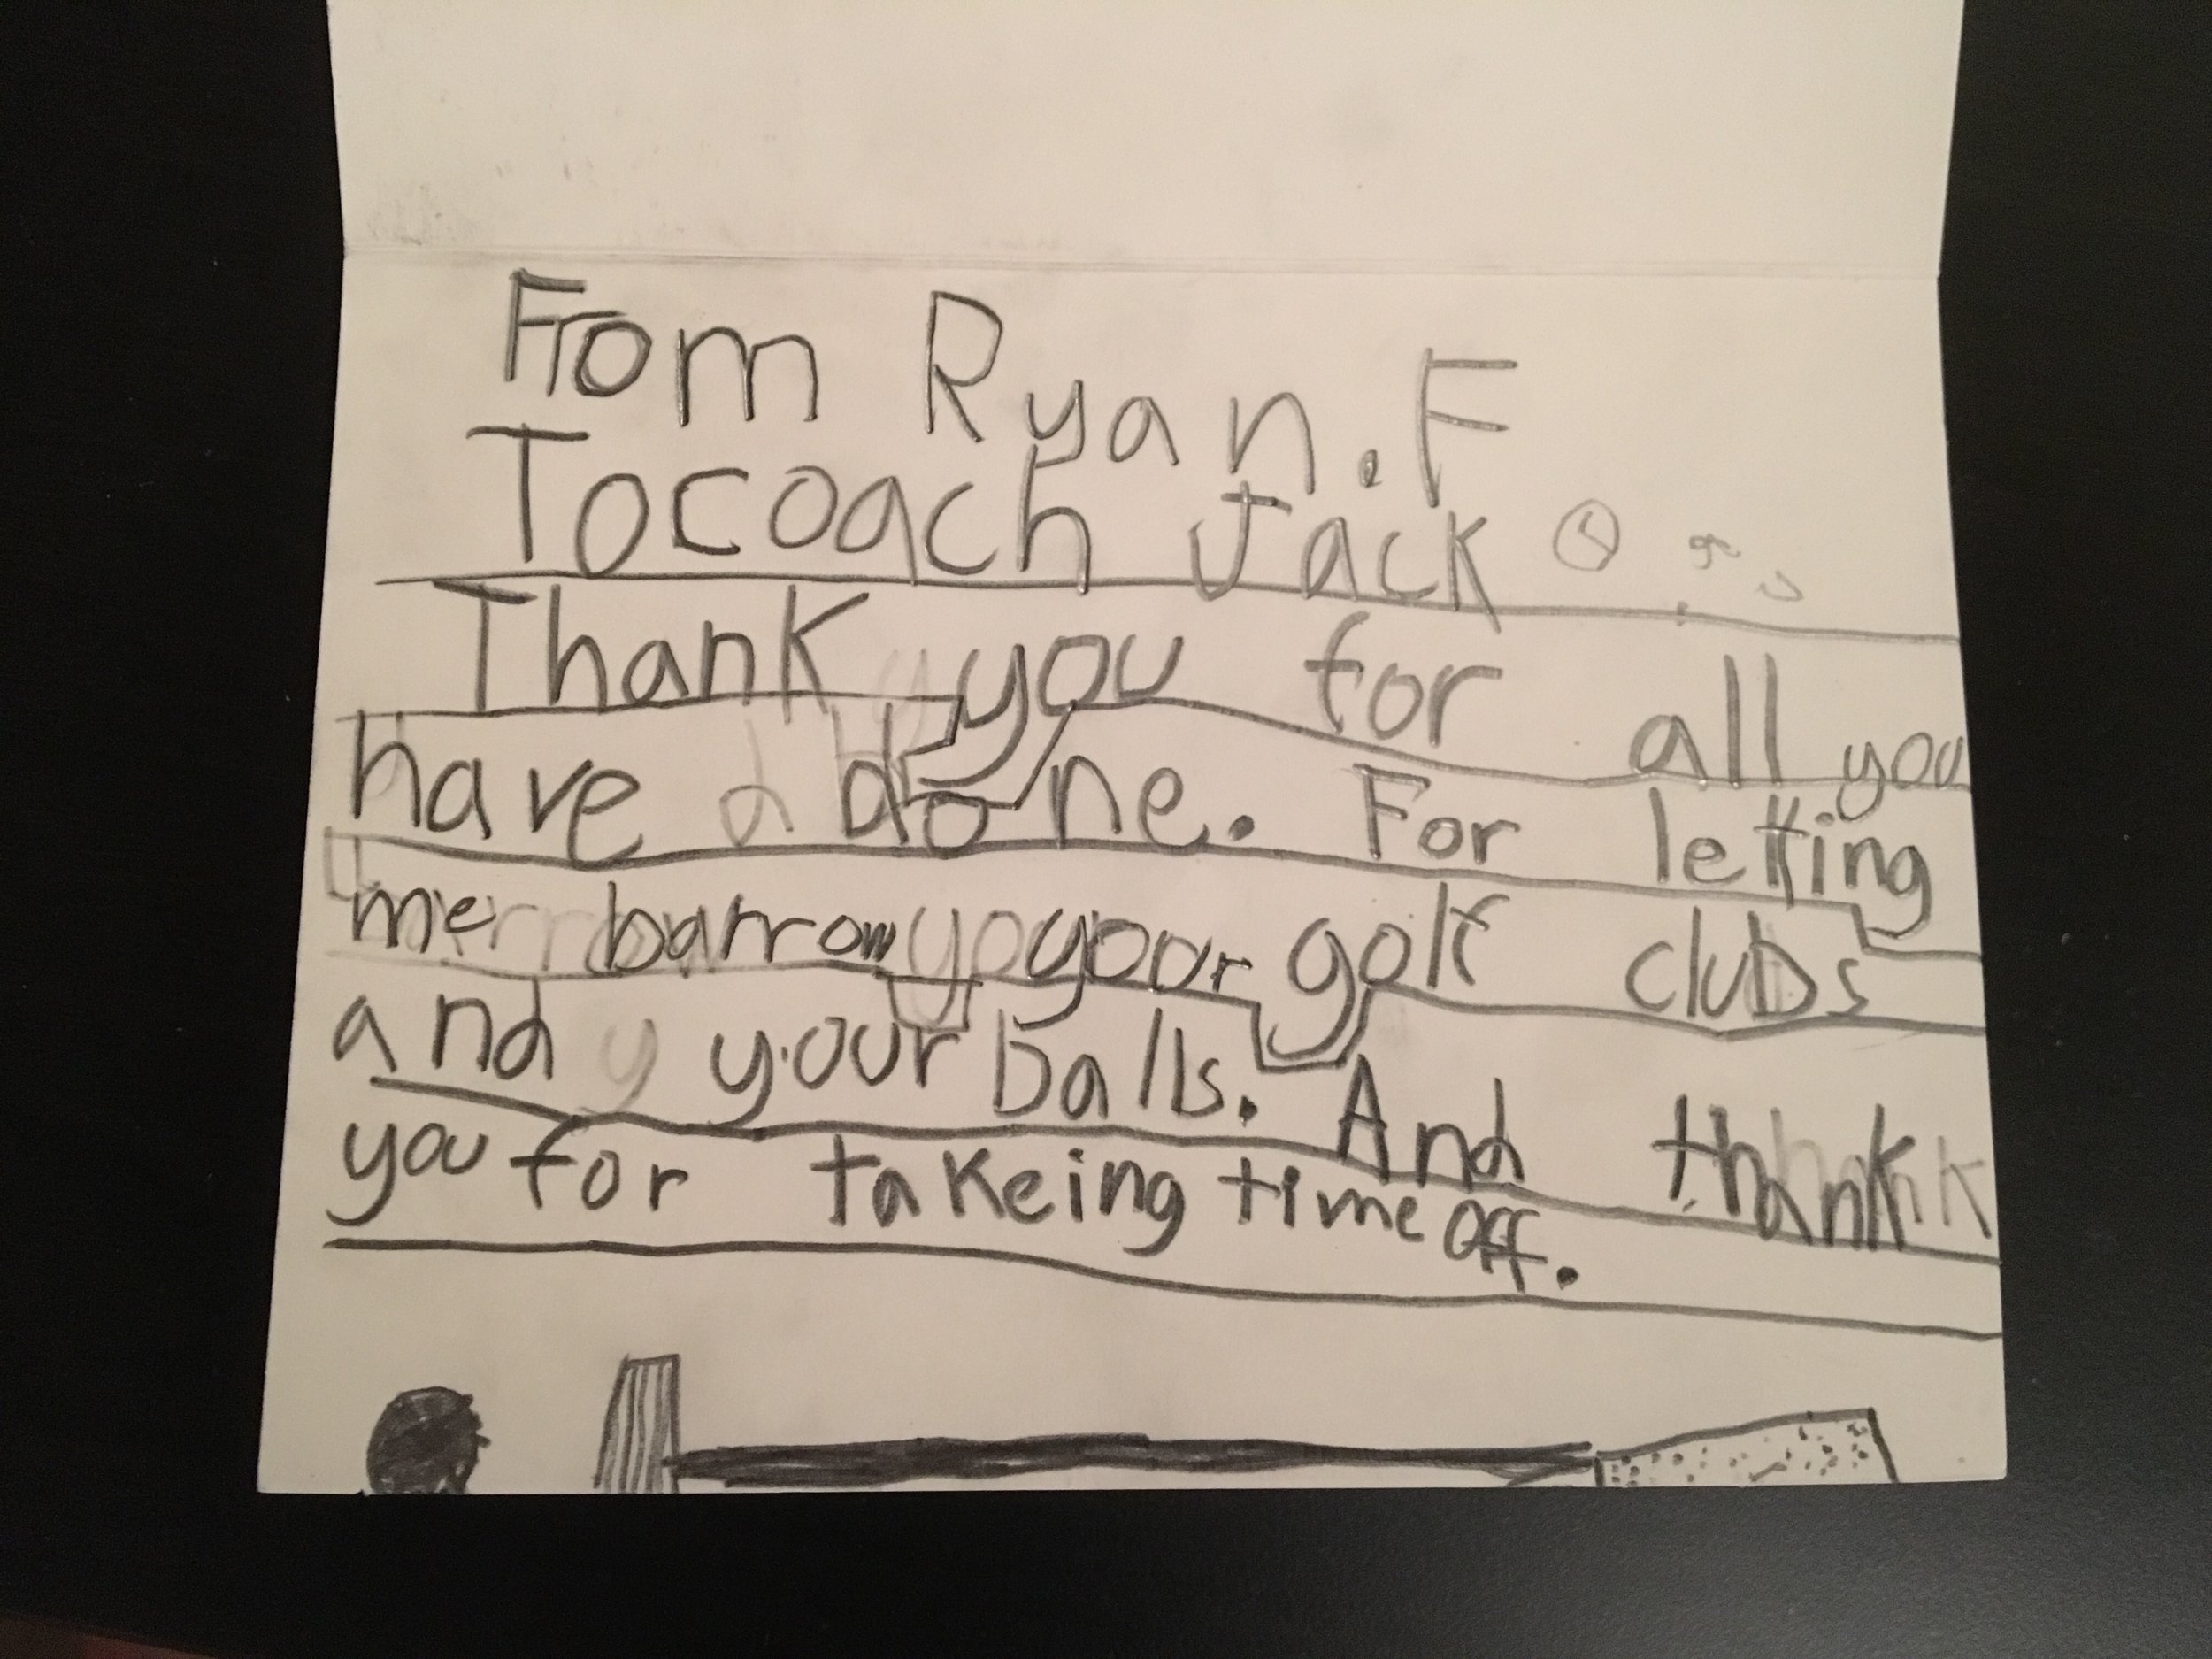 From Ryan.F
To coach Jack
Thank you for all you
have done. For letting
me barrow your golf clubs
and your balls. And thank
you for takeing time off.